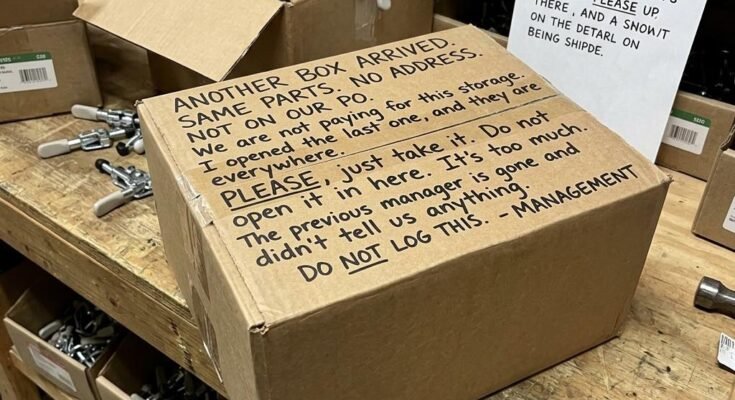 PLEASE UP,
THERE, AND A
ON THE DETARL ON
BEING SHIPDE.
ANOTHER BOX ARRIVED.
SAME PARTS. NO ADDRESS.
NOT ON OUR PO.
We are not paying for this storage.
I opened the last one, and they are
everywhere.
PLEASE, just take it. Do not
open it in here. It's too much.
The previous manager is gone and
didn't tell us anything.
DO NOT LOG THIS. -MANAGEMENT